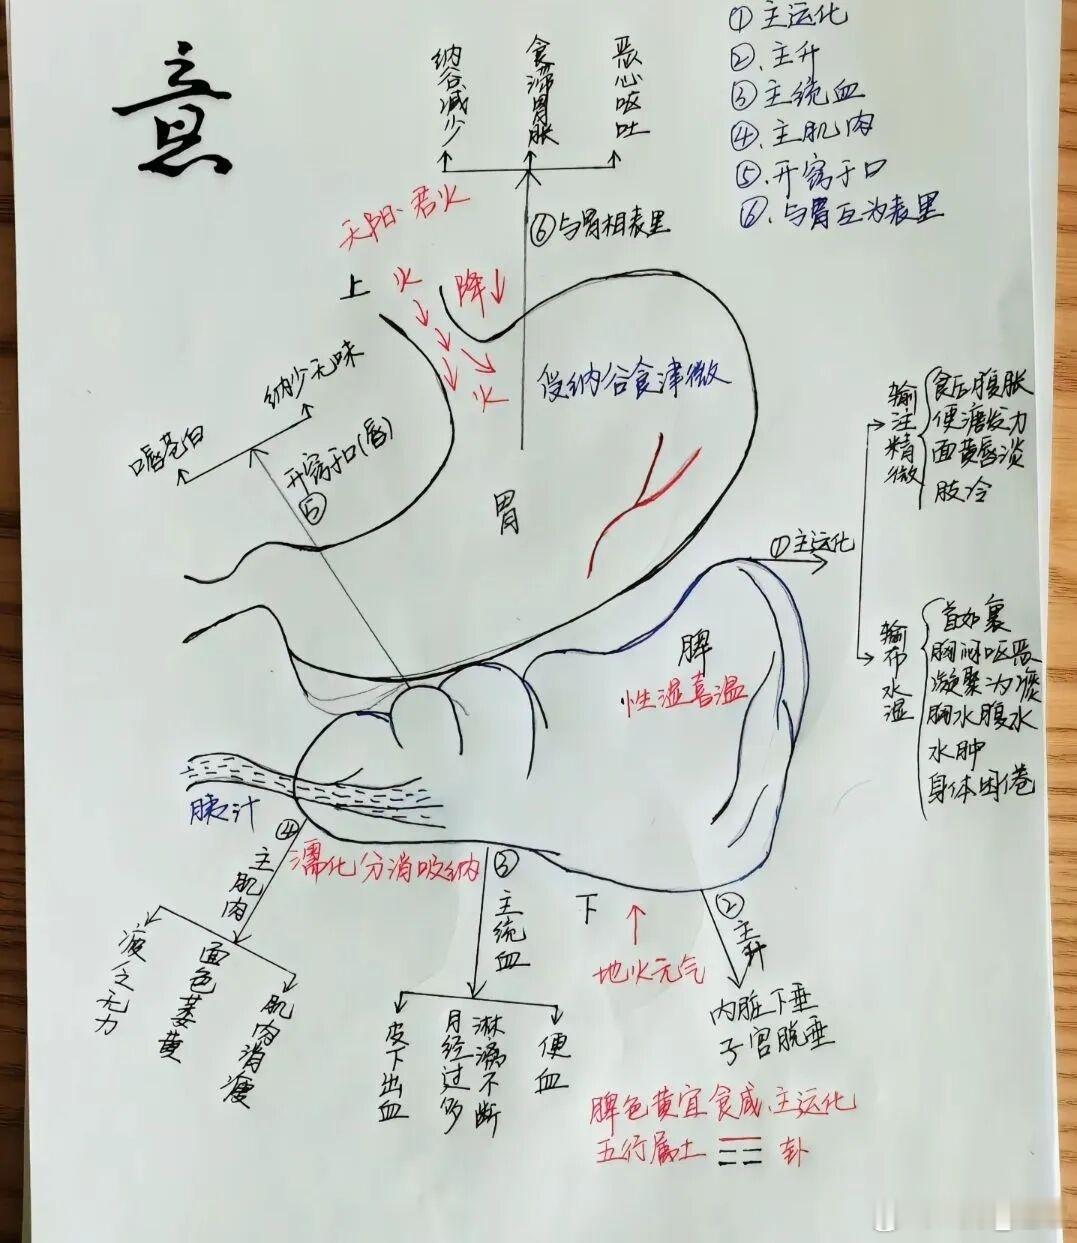 意
①主运化
②.主升
③主统血
④.主肌肉
⑤.开窍于口
⑥.与胃互为表里
纳谷减少
食滞胃胀
恶心呕吐
天阳·君火
⑥与胃相表里
上
火
降
火
受纳谷食津微
纳少无味
口唇苍白
开窍于口(唇)
⑤
胃
①主运化
输注精微
食后腹胀
便溏发力
面黄唇淡
肢冷
输布水湿
首如裹
胸闷呕恶
凝聚为痰
胸水腹水
水肿
身体困倦
脾
性湿喜温
胰汁
④主肌肉
濡化分消吸纳
疲乏无力
面色萎黄
肌肉消瘦
③主统血
皮下出血
月经过多
淋漓不断
便血
下
地火元气
②主升
内脏下垂
子宫脱垂
脾色黄宜食咸.主运化
五行属土 卦